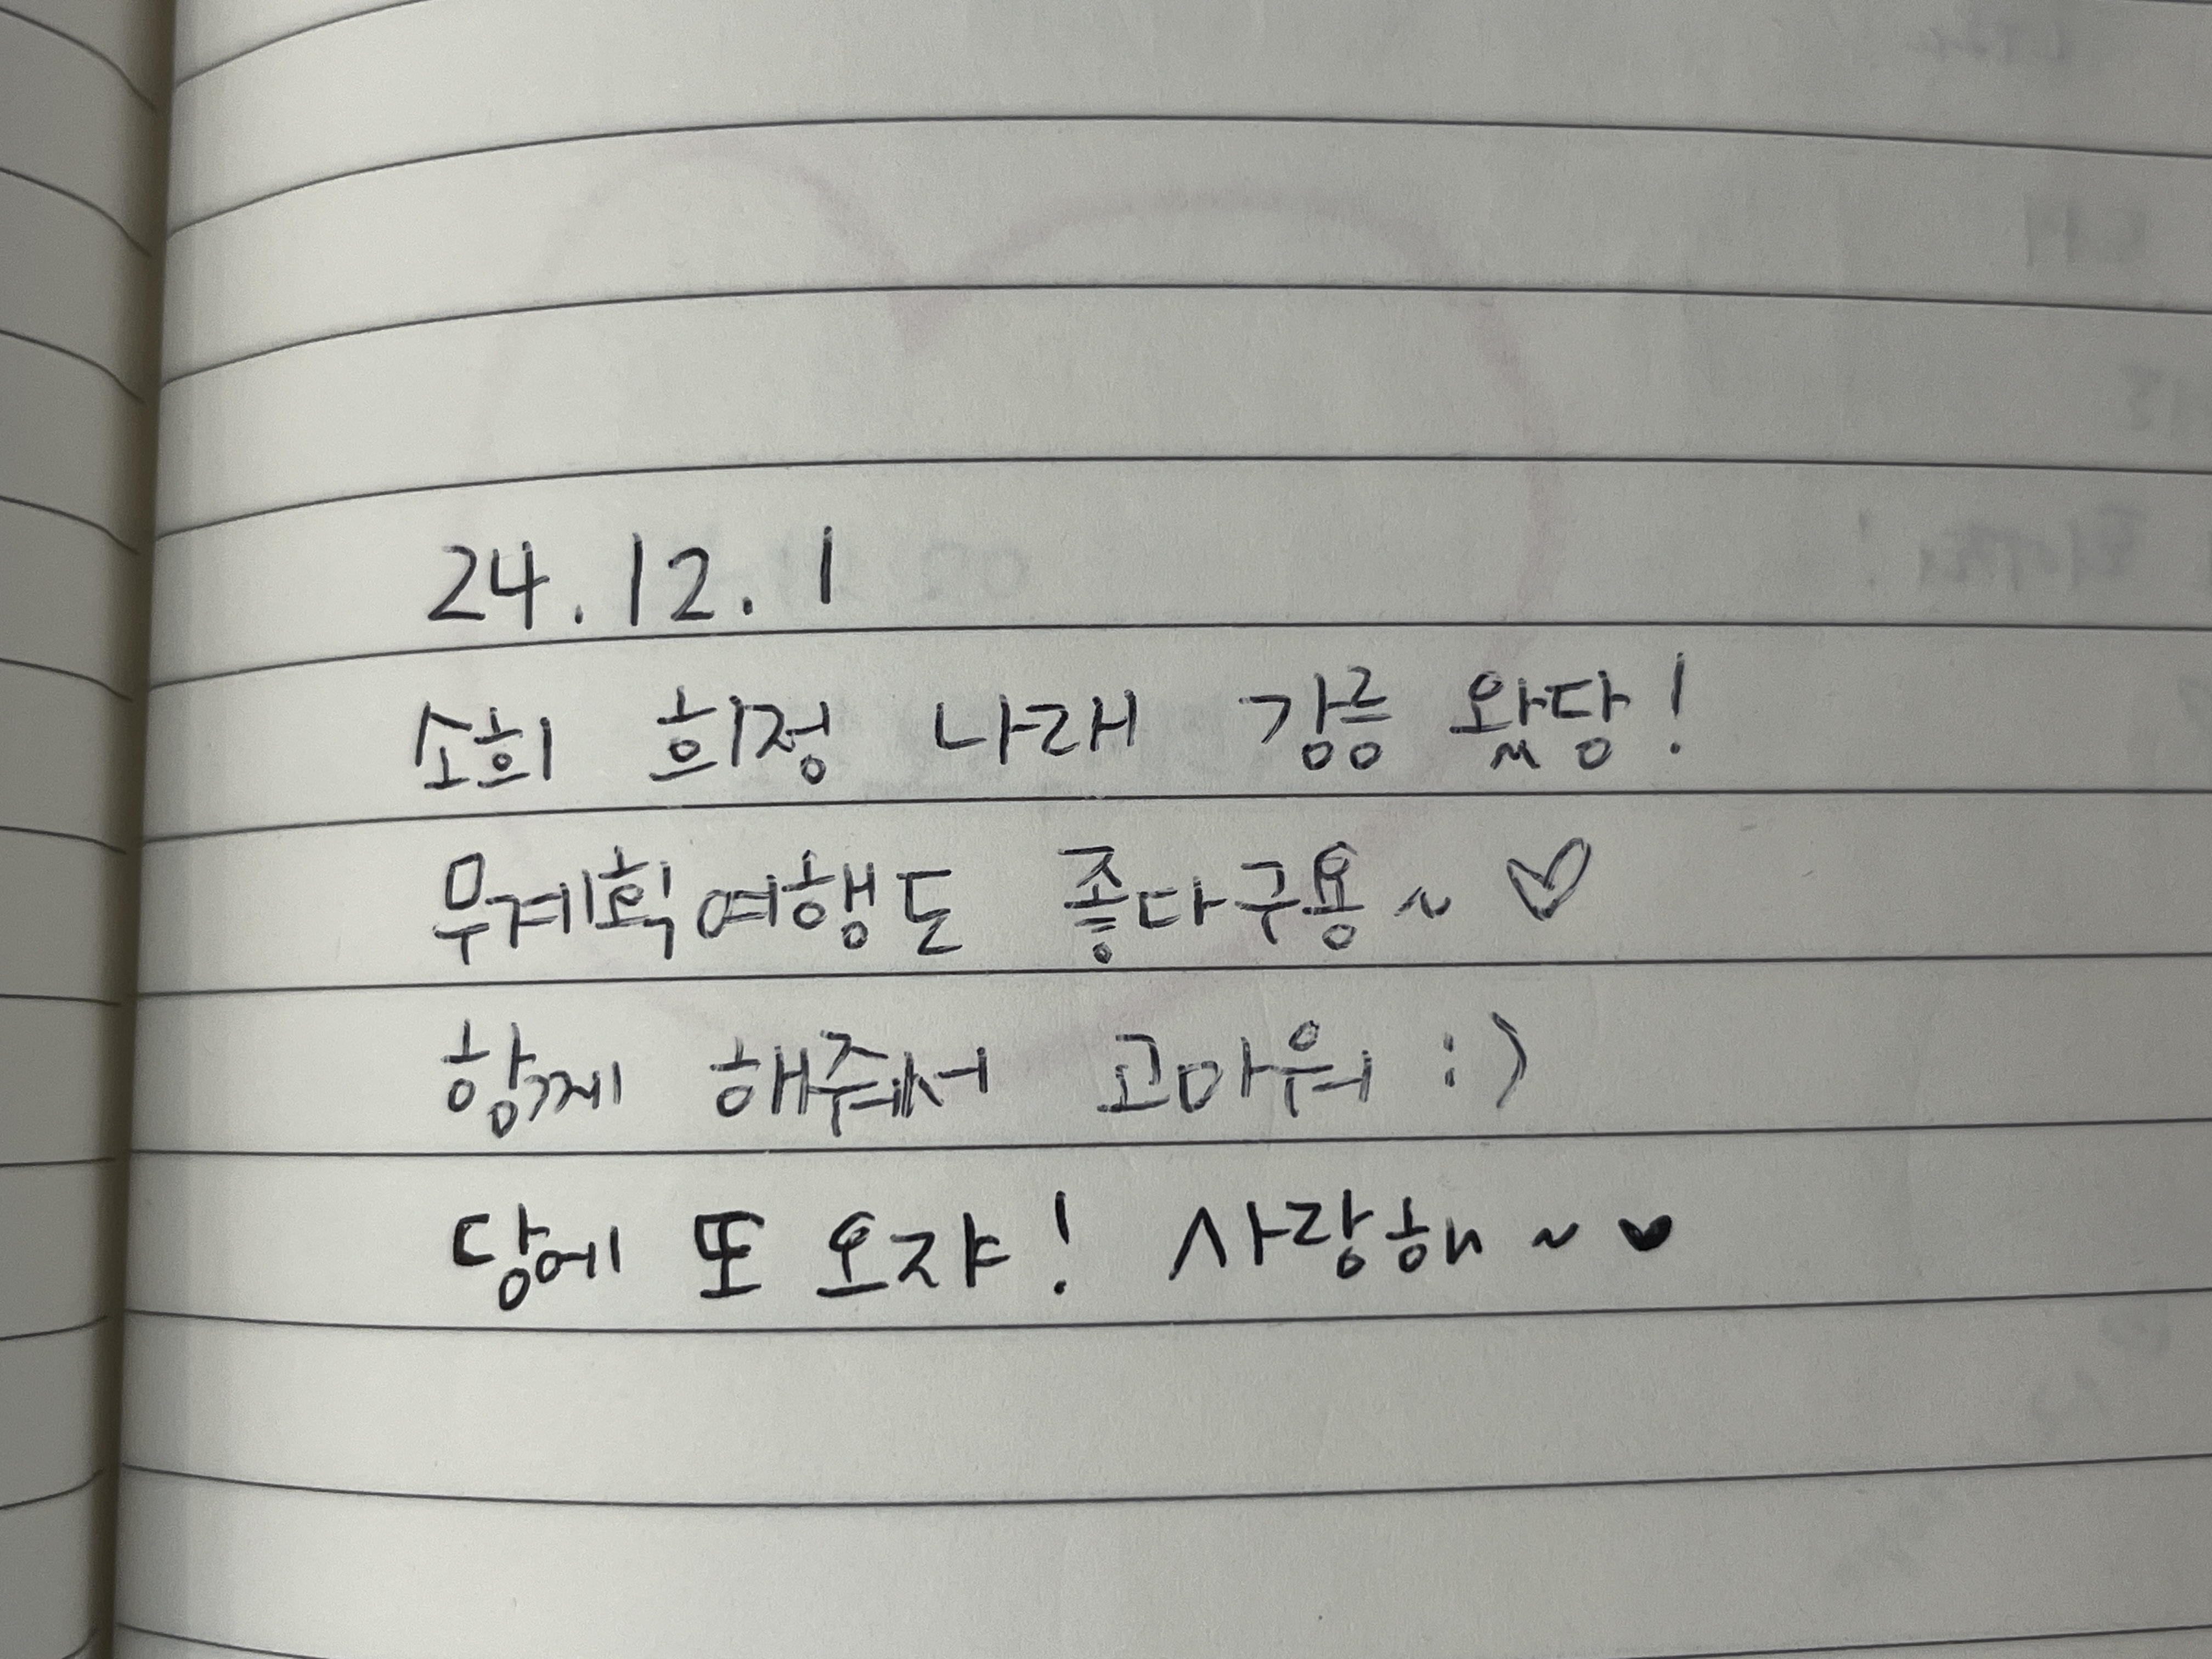 24.12.1
소희 희정 나래 강릉 왔당!
무계획여행도 좋다구용~ ♡
항께 해줘서 고마워 :)
담에 또 오쟈! 사랑해~ ♥